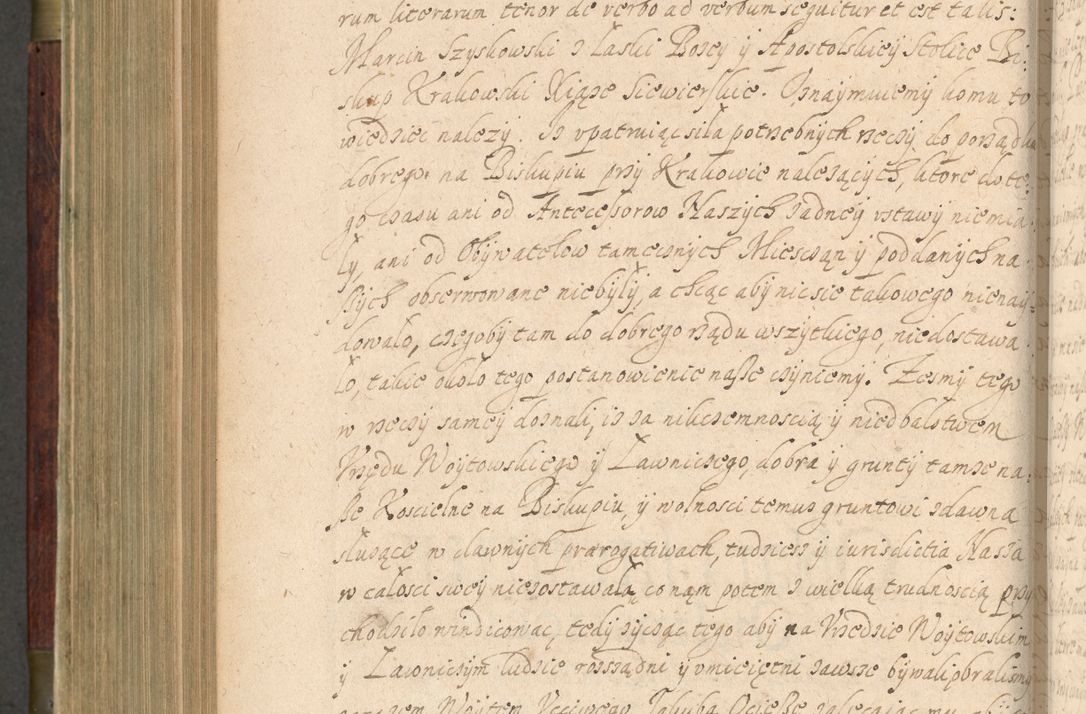 rum literarum tenor de verbo ad verbum sequitur et est talis:
Marcin Szyskowski z łaski Bozey y Apostolskiey Stolice Bi:
skup Krakowski Xiąze Siewierskie. Oznaymuiemy komu to
wiedziec nalezy. Iz vpatruiąc siła potrzebnych rzeczy do porządku
dobrego na Biskupiu przy Krakowie nalezących, ktore do te:
go czasu ani od Antecessorow Naszych zadney vstawy niemia:
ły, ani od Obywatelow tamecznych Miesczan y poddanych na
szych obserwowane niebyły, a chcąc aby nic sie takowego nienay:
dowało, czegoby tam do dobrego rządu wszytkiego, niedostawa
ło, takie około tego postanowienie nasze czyniemy. Zesmy tego
w rzeczy samey doznali, iz za nikczemnoscią y niedbalstwem
Vrzędu Woytowskiego y Lawniczego, dobra y grunty tamze na:
sze Koscielne na Biskupiu, y wolnosci temuz gruntowi zdawna
słuzące w dawnych prærogatiwach, tudziesz y iurisdictia Nasza
w całosci swey niezostawała, co nąm potem z wielką trudnoscią przy
chodziło windicowac, tedy zycząc tego aby na Vrzędzie Woytowskim
y Lawniczym ludzie rozsządni y vmieiętni zawsze bywali, obralismy
Woytem Vcciwego Jakuba